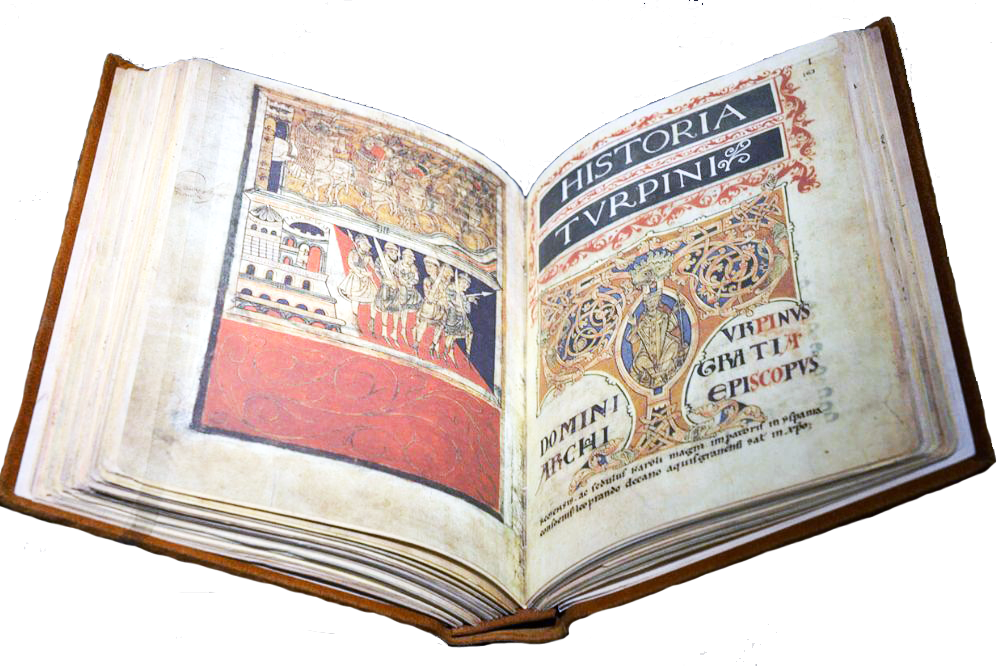 I
163
HISTORIA
TVRPINI
VRPINVS
DOMINI GRATIA
ARCHI EPISCOPVS
ac sedulus Karoli magni imperatoris in yspania
leoprando decano aquisgranensi sal' in xpo;